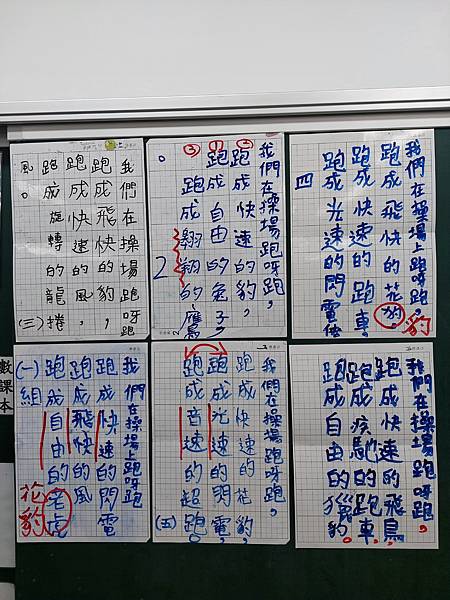 我們在操場跑呀跑
跑成飛快的豹，
跑成快速的風，
跑成旋轉的龍捲
風。
(三)
我們在操場跑呀跑，
跑成快速的豹，
跑成自由的兔子，
跑成翱翔的鷹
。
2
我們在操場上跑呀跑，
跑成飛快的花豹
跑成快速的跑車，
跑成光速的閃電俠
四
我們在操場上跑呀跑
跑成快速的閃電
跑成飛快的風
跑成自由的老虎
(一)組
花豹
我們在操場跑呀跑，
跑成快速的花豹，
跑成光速的閃電，
跑成音速的超跑。
(五)
我們在操場上跑呀跑，
跑成快速的飛鳥，
跑成疾馳的跑車，
跑成自由的獵豹。
數課本